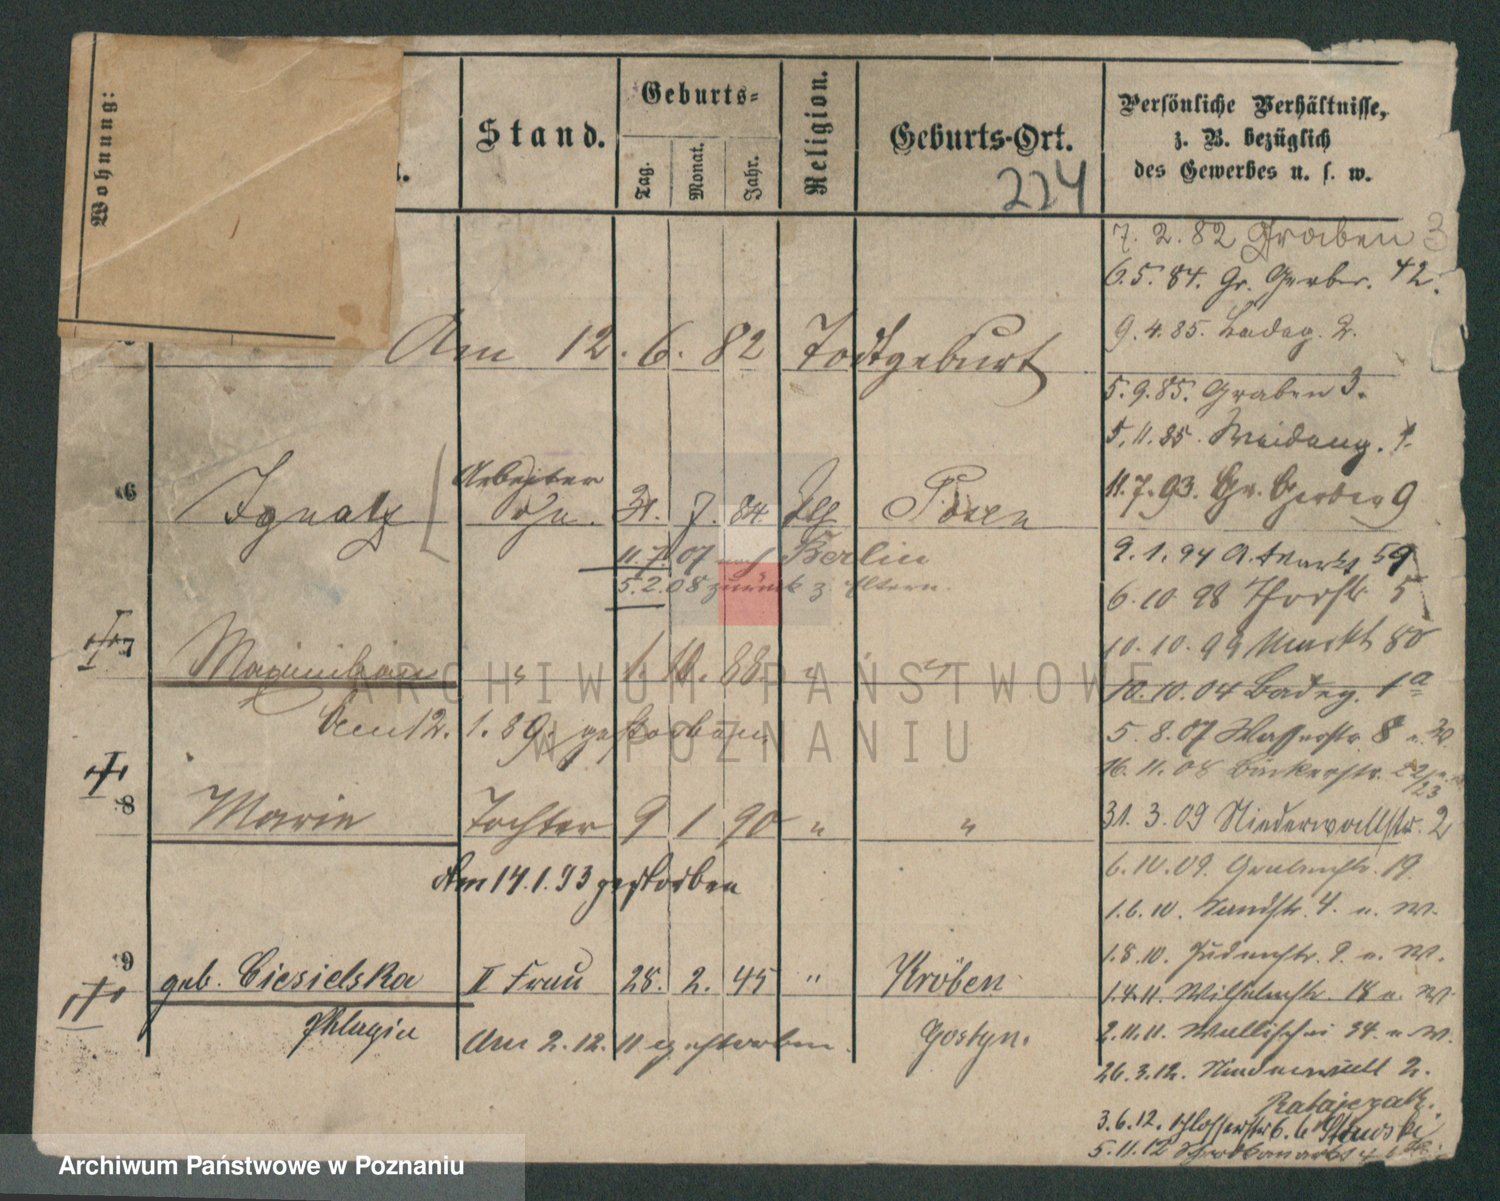 Wohnung:
Stand.
Geburts=
Tag.
Monat.
Jahr.
Religion.
Geburts-Ort.
Persönliche Verhältnisse,
z. B. bezüglich
des Gewerbes u. s. w.
224
7. 2. 82 Graben 3
6. 5. 84. Gr. Gerber. 42.
Am 12. 6. 82 Todtgeburt
9. 4. 85. Badeg. 2.
5. 9. 85. Graben 3.
5. 11. 85.
6 Ignatz Arbeiter 31. 7. 84. Posen
11. 7. 93. Gr. Gerber 9
11. 7. 07 nach Berlin
9. 1. 94 A. Markt 59
5. 2. 08 zurück z. Eltern.
6. 10. 98 Thorstr. 5
7 Maximilian " 1. 10. 88 " "
10. 10. 99 Markt 80
10. 10. 04 Badeg. 1a
Am 12. 1. 89. gestorben.
5. 8. 07 Wasserstr 8 u. W
16. 11. 08 Bäckerstr.
8 Marie Tochter 9 1 90 " "
31. 3. 09 Niederwallstr. 2
Am 14. 1. 93 gestorben
6. 10. 09. Grabenstr. 19.
1. 6. 10. Sandstr. 4. u. W.
9 geb. Ciesielska II Frau 28. 2. 45 " Kröben
1. 8. 10. Judenstr. 2 u. W.
1. 4. 11. Wilhelmstr. 18 u. W.
Phlagia Am 2. 12. 11 gestorben. Gostyn.
2. 11. 11. Wallischei 34. u. W.
26. 3. 12. Niederwall 2.
Ratajczak.
3. 6. 12. Schlosserstr 6. b
5. 11. 12
ARCHIWUM PAŃSTWOWE
W POZNANIU
Archiwum Państwowe w Poznaniu